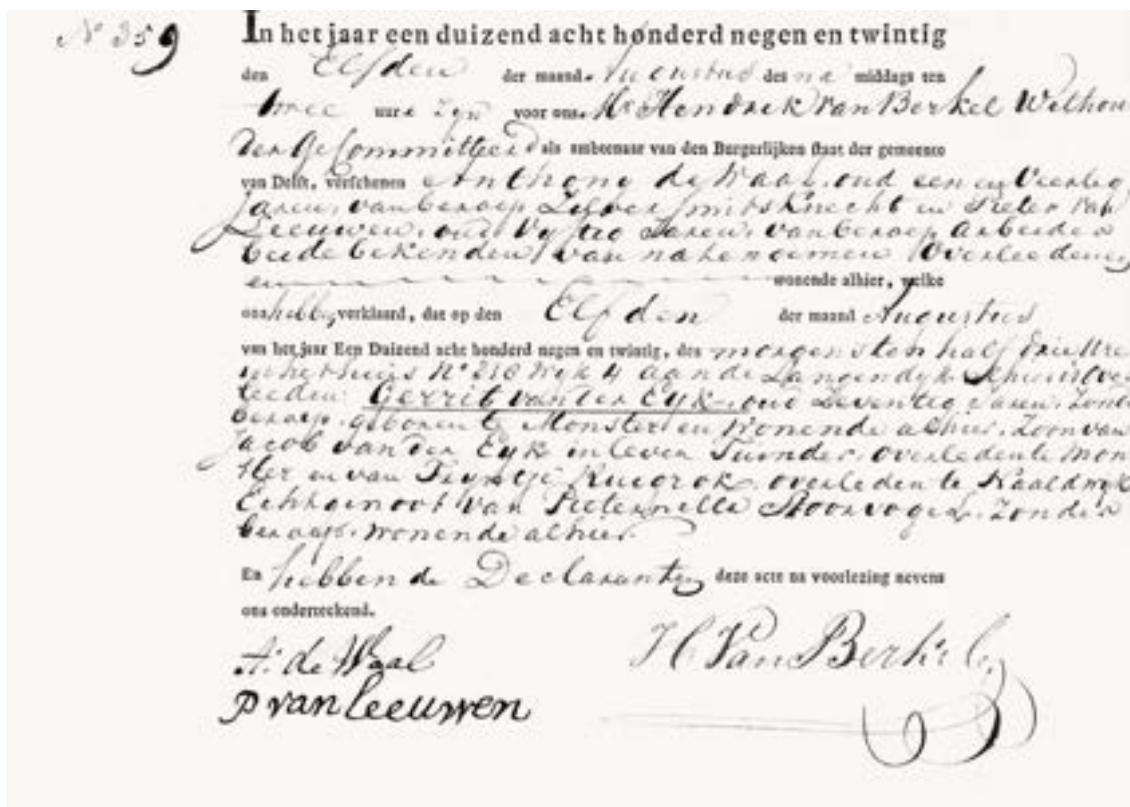 No 359
In het jaar een duizend acht honderd negen en twintig
den Elfden der maand Augustus des na middags ten
twee ure zyn voor ons Mr Hendrik van Berkel Wethou
der Gecommitteerd als ambtenaar van den Burgerlijken staat der gemeente
van Delft, verschenen Anthony de Waal, oud een en Veertig
Jaren, van beroep Zilversmitsknecht en Pieter van
Leeuwen, oud Vyftig Jaren, van beroep Arbeider
beide bekenden van natenoemen Overledene,
en wonende alhier, welke
ons hebben verklaard, dat op den Elfden der maand Augustus
van het jaar Een Duizend acht honderd negen en twintig, des morgens ten half drie Ure
in het huis No 210 Wyk 4 aan de Langendyk is over
leeden Gerrit van der Eyk, oud Zeventig Jaren, Zond
beroep, geboren te Monster en Wonende alhier, Zoon van
Jacob van der Eyk in leven Tuinder, overleden te Mon
ster en van Tryntje Ruigrok, overleden te Naaldwyk
Echtgenoot van Pieternella Noorvogel, Zonder
beroep, wonende alhier
En hebben de Declaranten deze acte na voorlezing nevens
ons onderteekend.
A. de Waal H Van Berkel
P van Leeuwen